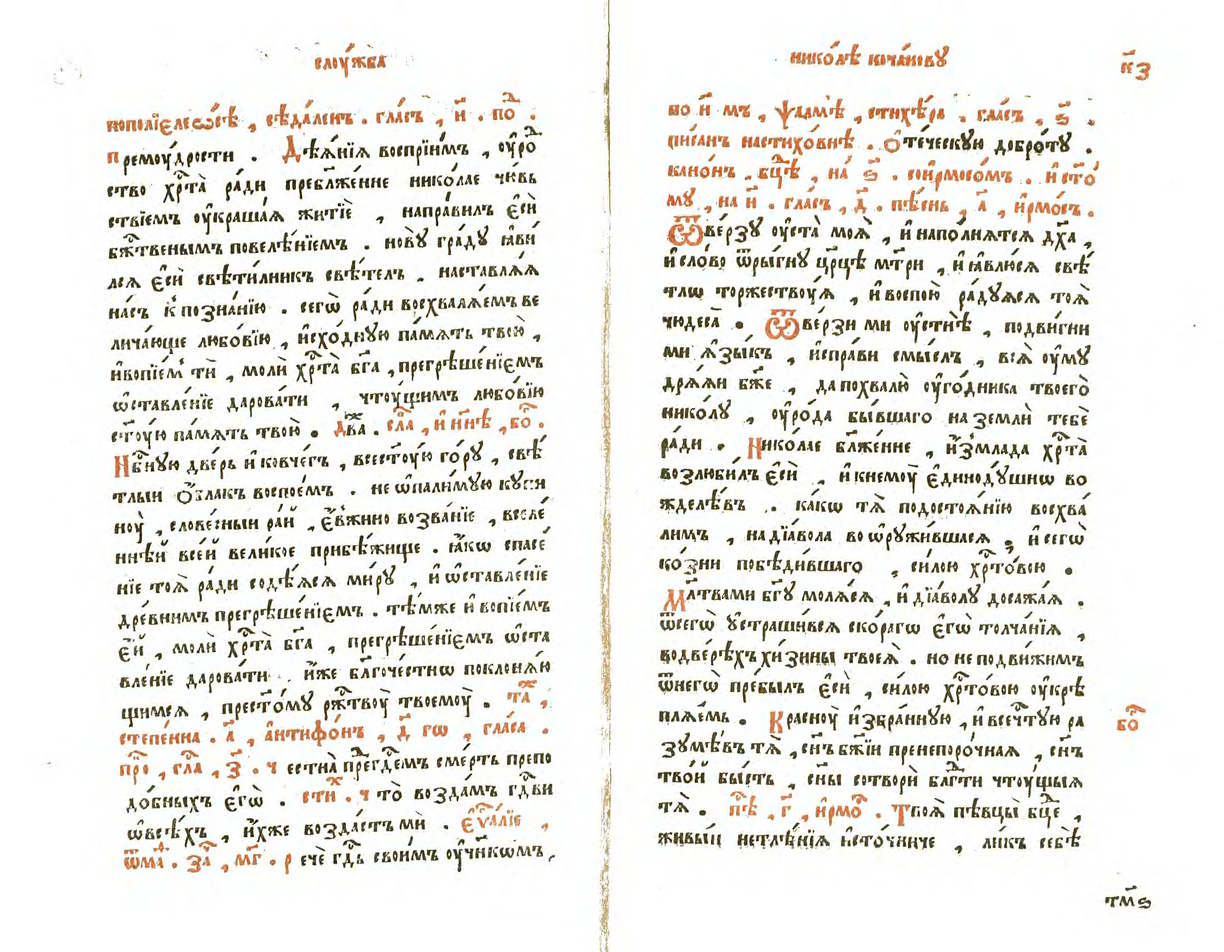 слоу́жба
пополїеле́ѡсѣ , сѣда́ленъ . гла́съ , и҃ . поⷣ .
премоу́дрости . Дѣѧ́нїѧ воспрїи́мъ , оу҆ро́д
ство хрⷭ҇та̀ ра́ди преблаже́нне нико́лае чю́вь
ствїемъ оу҆краша́ѧ житїѐ , напра́вилъ є҆сѝ
бж҃твенымъ повелѣ́нїемъ . но́вꙋ гра́дꙋ ꙗ҆ви́
лсѧ є҆сѝ свѣти́лникъ свѣ́телъ , наставлѧ́ѧ
на́съ к позна́нїю . сегѡ̀ ра́ди восхвалѧ́емъ ве
лича́юще любо́вїю , и҆схо́дную па́мѧть твою̀ ,
и҆вопїе́мъ тѝ , молѝ хрⷭ҇та̀ бг҃а , прегрѣше́нїемъ
ѡ҆ставле́нїе дарова́ти , чтоу́щимъ любо́вїю
ст҃оу́ю па́мѧть твою̀ . два́ж . сла́ , и҆ нн҃ѣ , бо́ .
Нб҃ную две́рь и҆ ковче́гъ , всест҃оу́ю го́рꙋ , свѣ́
тлыи ѻ҆́блакъ воспое́мъ . не ѡ҆пали́мꙋю кꙋпи
ноу̀ , слове́сныи ра́й , є҆́ѵжино возва́нїе , вселе́
ннѣ́й все́й вели́кое прибѣ́жище . ꙗ҆́кѡ спасе́
нїе тоѧ̀ ра́ди содѣ́ѧсѧ ми́рꙋ , и҆ ѡ҆ставле́нїе
дре́внимъ прегрѣше́нїемъ . тѣ́мже и҆ вопїе́мъ
є҆́й , молѝ хрⷭ҇та̀ бг҃а , прегрѣше́нїемъ ѡ҆ста
вле́нїе дарова́ти . и҆́же бл҃гоче́стнѡ поклонѧ́ю
щимсѧ , прест҃о́мꙋ рж҃твоу̀ твоемоу̀ . та́ж ,
степе́нна . а҃ , а҆нтифо́нъ , д҃ гѡ , гла́са .
про́ , гла́ , з҃ . честна̀ преⷣ гдⷭ҇емъ сме́рть препо
до́бныхъ є҆гѡ̀ . сти́х . что̀ возда́мъ гдⷭ҇ви
ѡ҆ всѣ́хъ , и҆́хже возда́стъ мѝ . є҆ѵⷢ҇а́лїе ,
ѿ мѳ . за́ , мг҃ . речѐ гдⷭ҇ь свои́мъ оу҆чн҃кѡмъ ,
нико́лѣ коча́новꙋ
к҃з
во и҃ мъ , ѱалмѣ̀ , стихѣ́ра . гла́съ , ѕ҃ .
пи́санъ настихо́внѣ . Ѻ҆те́ческꙋю добро́тꙋ .
кано́нъ . бц҃ѣ , на̀ ѕ҃ . соирмосо́мъ . и҆ ст҃о́
мꙋ , на и҃ . гла́съ , д҃ . пѣ́снь , а҃ , и҆рмо́съ .
Ѿве́рзꙋ оу҆ста̀ моѧ̀ , и҆ напо́лнѧтсѧ дх҃а ,
и҆ сло́во ѿры́гнꙋ цр҃цѣ мт҃ри , и҆ ꙗ҆влю́сѧ свѣ́
тлѡ торжествоу́ѧ , и҆ воспою̀ ра́дꙋѧсѧ тоѧ̀
чюдеса̀ . Ѿве́рзи ми оу҆стнѣ̀ , подви́гни
ми ѧ҆зы́къ , и҆спра́ви смы́слъ , всѧ̀ оу҆мꙋ
дрѧ́ѧи бж҃е , да похвалю̀ оу҆го́дника твоего̀
нико́лꙋ , оу҆ро́да бы́вшаго на землѝ тебѐ
ра́ди . Нико́лае бл҃же́нне , и҆зъмла́да хрⷭ҇та̀
возлюби́лъ є҆сѝ , и҆ к немоу̀ є҆диноду́шнѡ во
жделѣ́въ . ка́кѡ тѧ̀ подостоѧ́нїю восхва́
лимъ , на дїа́вола воѡрꙋжи́вшасѧ , и҆ сегѡ̀
ко́зни побѣди́вшаго , си́лою хрⷭ҇то́вою .
Мл҃твами бг҃ꙋ молѧ́сѧ , и҆ дїа́волꙋ досажа́ѧ .
ѿсегѡ̀ ꙋ҆страши́всѧ ско́рагѡ є҆гѡ̀ толча́нїѧ ,
во две́рѣхъ хи́зины твоеѧ̀ . но не подви́жимъ
ѿ негѡ̀ пребы́лъ є҆сѝ , си́лою хрⷭ҇то́вою оу҆крѣ
плѧ́емь . Красноу̀ и҆збра́нную , и҆ всечⷭ҇тую ра
зꙋмѣ́въ тѧ̀ , сн҃ъ бж҃їи пренепоро́чная , сн҃ъ
тво́й бы́сть , сн҃ы сотворѝ бл҃гти чтоу́щыѧ
тѧ̀ . пѣ́ , г҃ , и҆рмо́ . Твоѧ̀ пѣвцы̀ бц҃е ,
живы́и нетлѣ́нїѧ и҆сто́чниче , ли́къ себѣ̀
бо́
тм҃ѕ